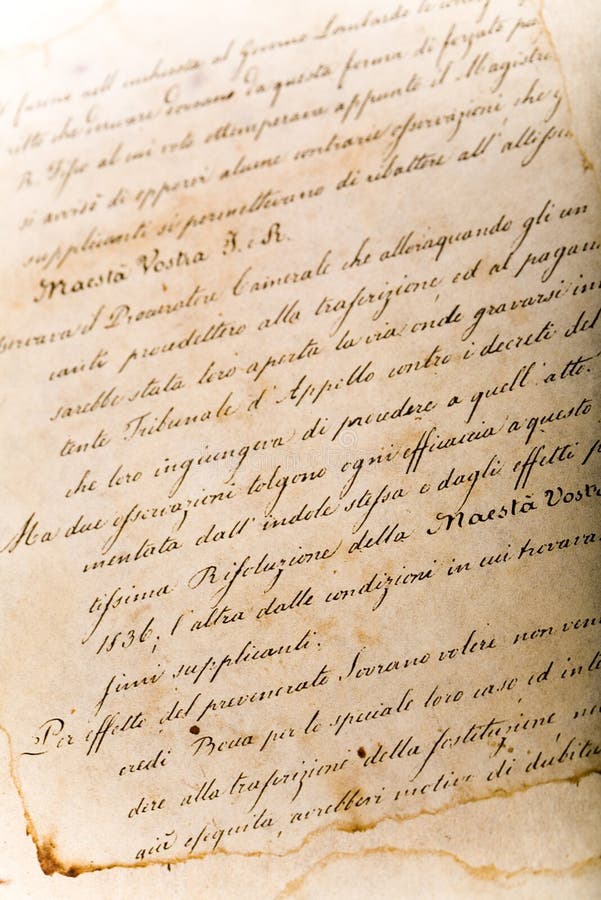 furono nell' inchiesta al Governo Lombardo
che derivare dovesse da questa forma di forzato
R. Fisco al cui voto ottemperava appunto il Magistr
si avvisò di opporvi alcune contrarie osservazioni, che
supplicanti si permettevano di ribattere all' altissi
Maestà Vostra I. e R.
sservava il Procuratore Camerale che allora quando gli un
canti procedettero alla trasferizione, ed al pagam
sarebbe stata loro aperta la via onde gravarsi in
tente Tribunale d' Appello contro i decreti del
che loro ingiungeva di procedere a quell' atto.
Ma due osservazioni tolgono ogni efficaccia a questo
mentata dall' indole stessa e dagli effetti
tissima Risoluzione della Maestà Vostr
1836; l' altra dalle condizioni in cui trovava
simi supplicanti.
Per effetto del prevenerato Sovrano volere non ven
credi Bocca per lo speciale loro caso ed int
dere alla trasferizione della sostituzione,
già eseguita, avrebbevi motivo di dubita